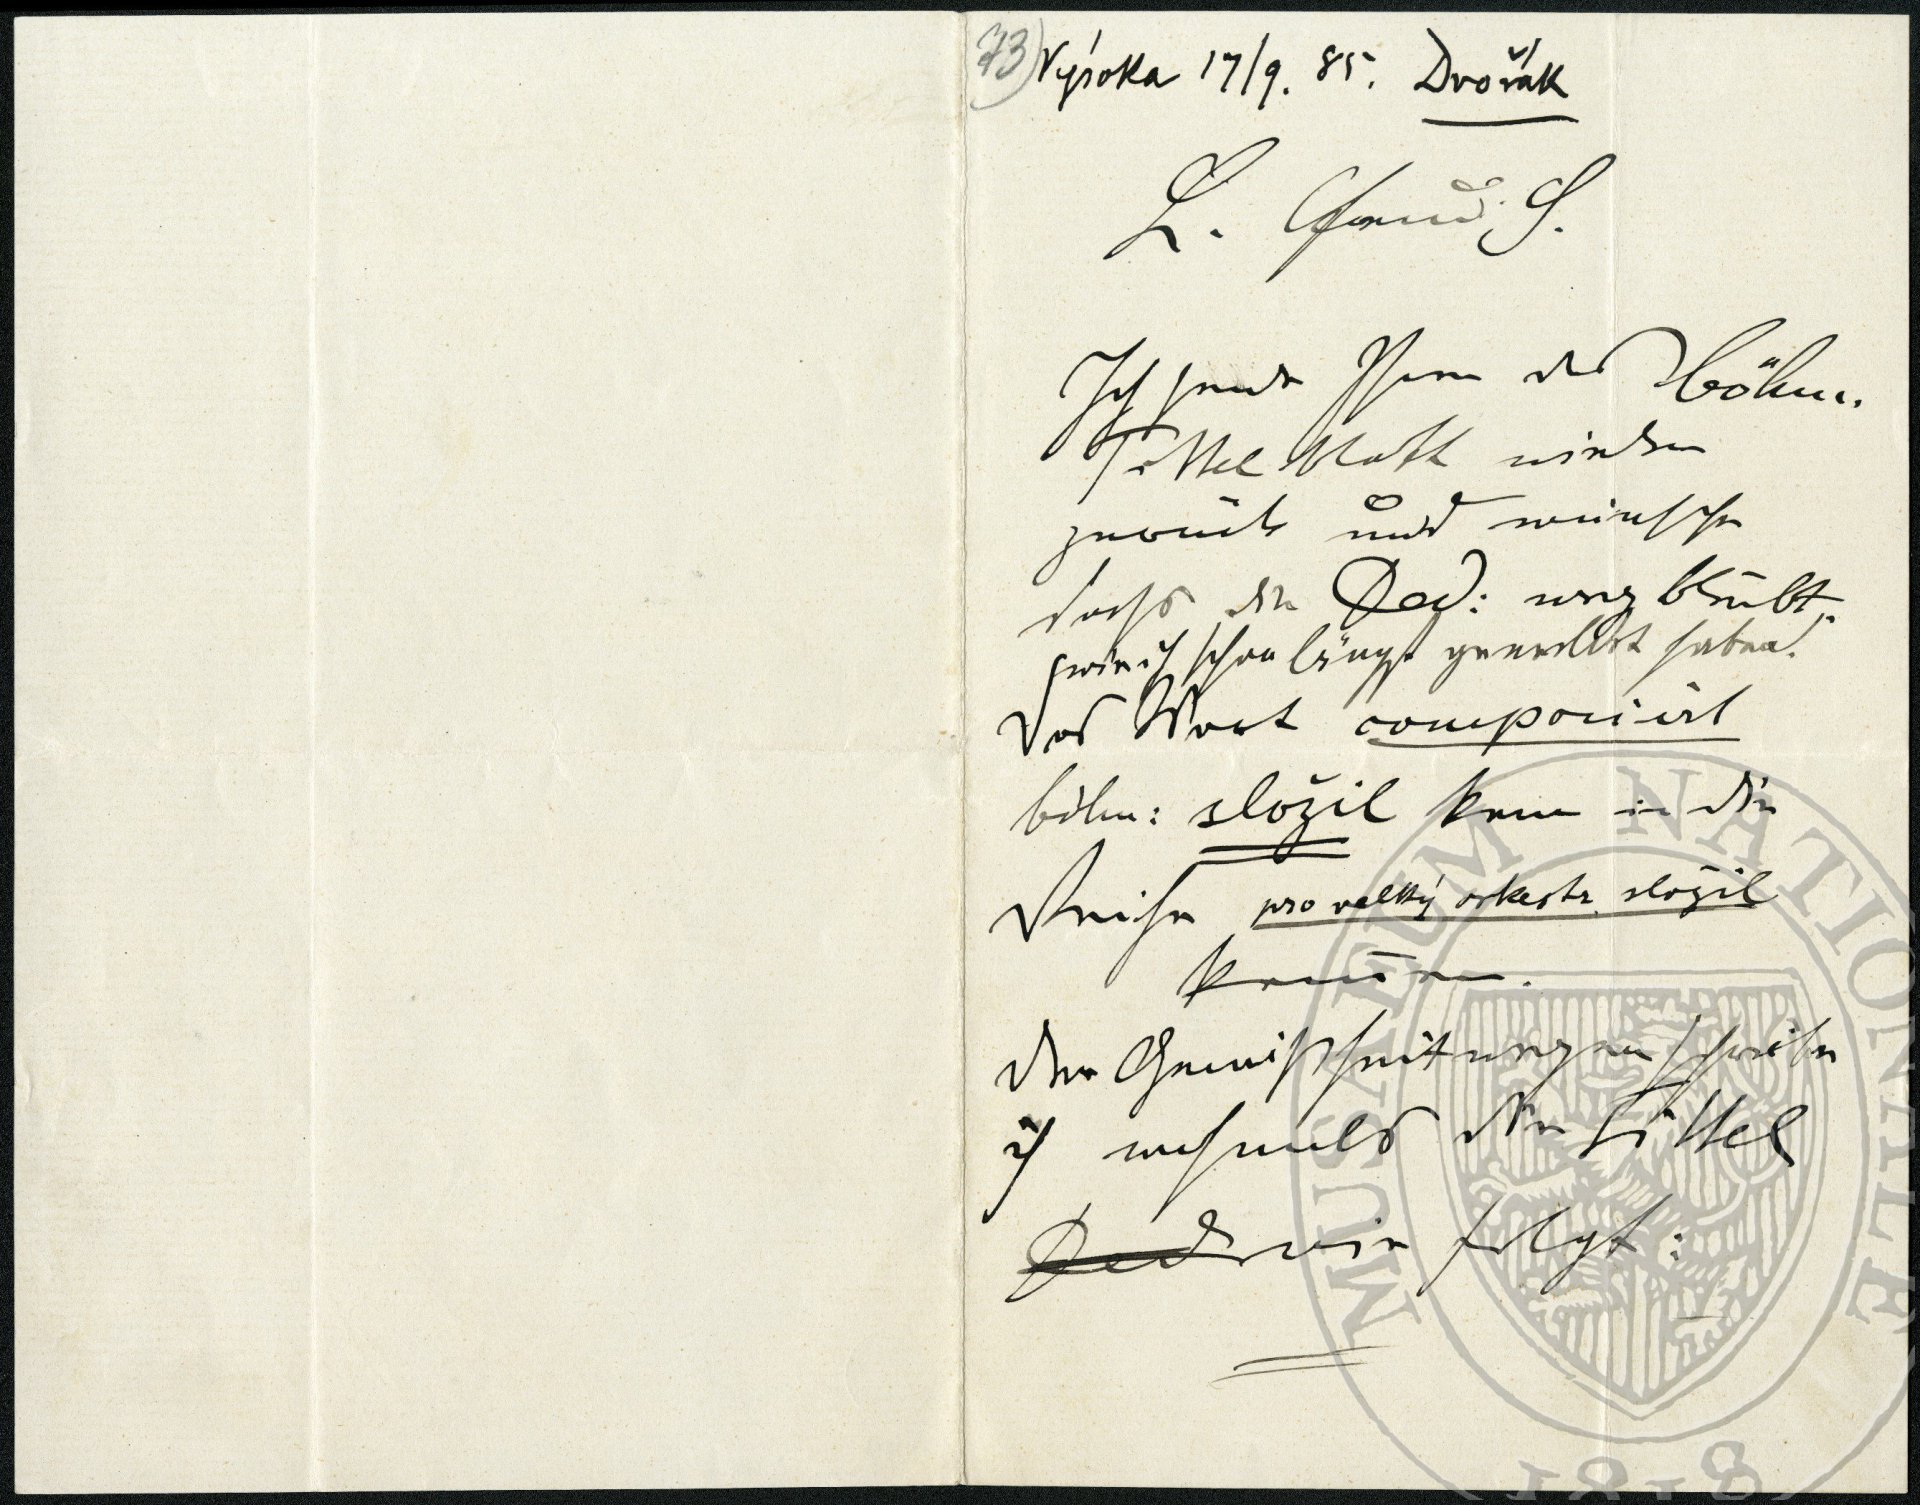 73)
Vysoka 17/9. 85. Dvořák
L. Freund S.
Ich sende Ihnen das böhm.
Tittel blatt wieder
zurück und wünsche
dass die Ded: weg bleibt,
wie ich schon längst gemeldet habe.
Das Wort componiert
böhm: složil kann in die
Reihe pro velký orkestr složil
kommen.
Der Genauigkeit wegen schreibe
ich nochmals den Tittel
Ded wie folgt:
MUSAEUM NATIONALE
1818